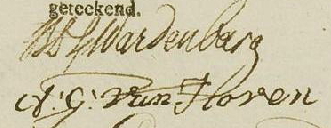 geteekend.
Wardenburg
A: G: Van Hoven